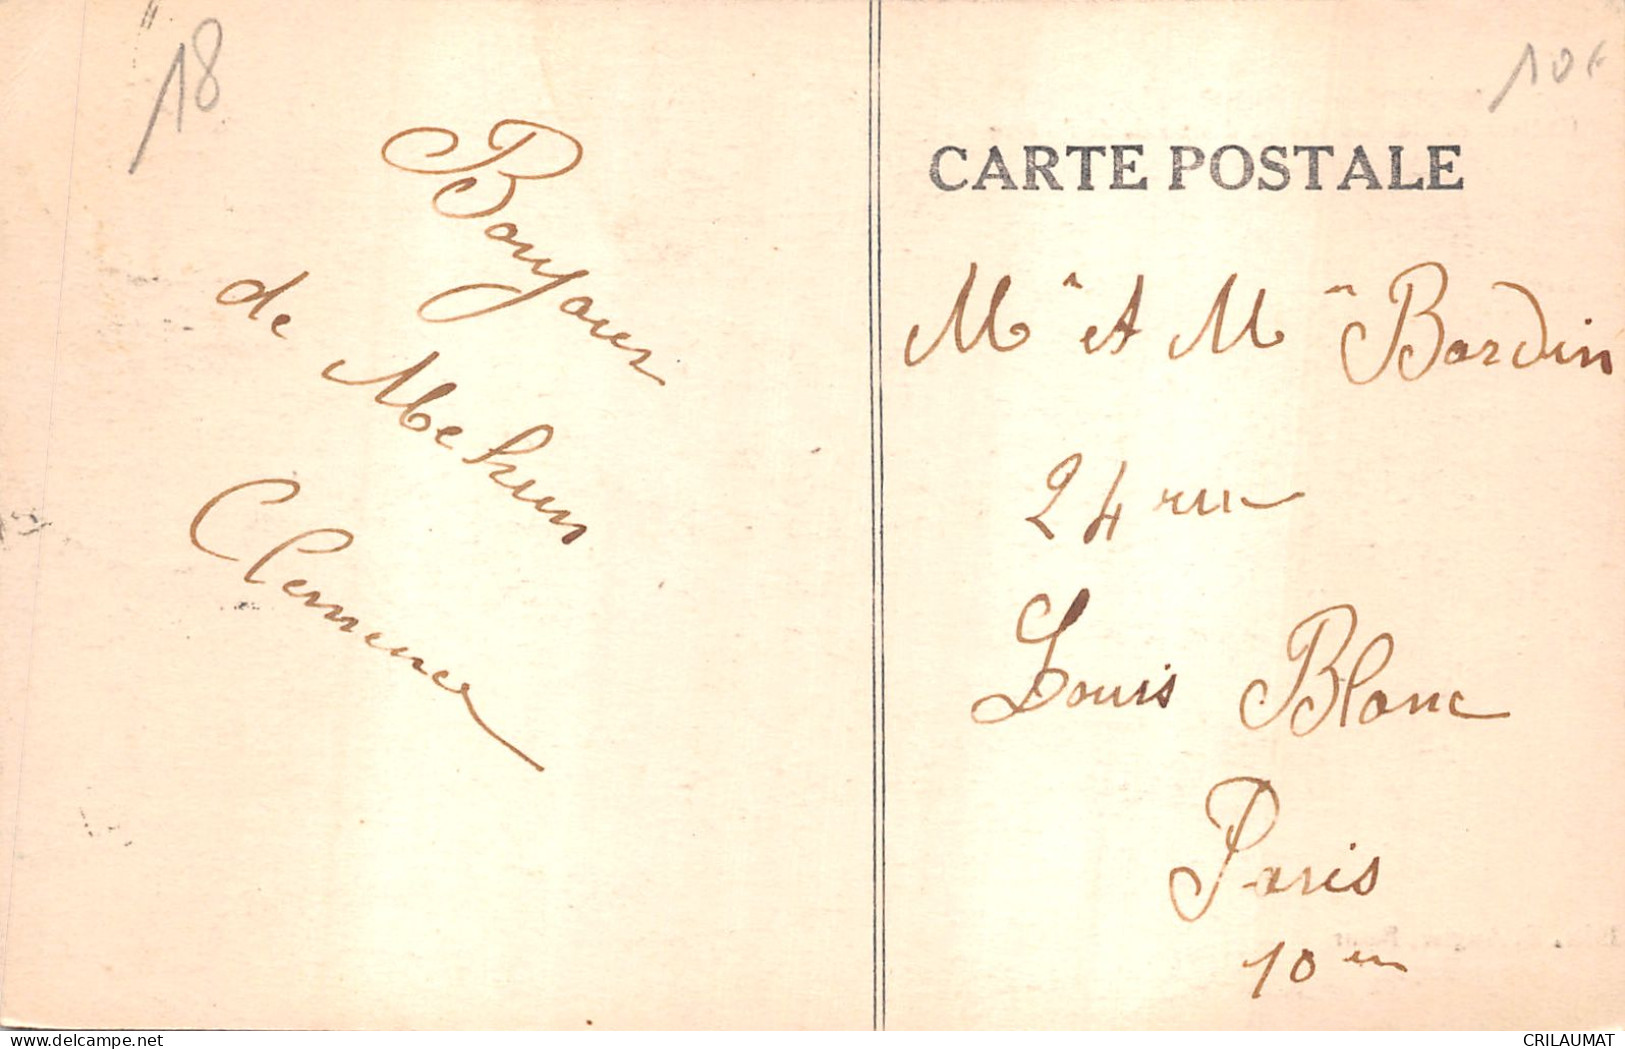 18
Bonjour
de Mehun
Clemence
10€
CARTE POSTALE
Mr et Mme Bardin
24 rue
Louis Blanc
Paris
10em
delcampe.net
CRILAUMAT